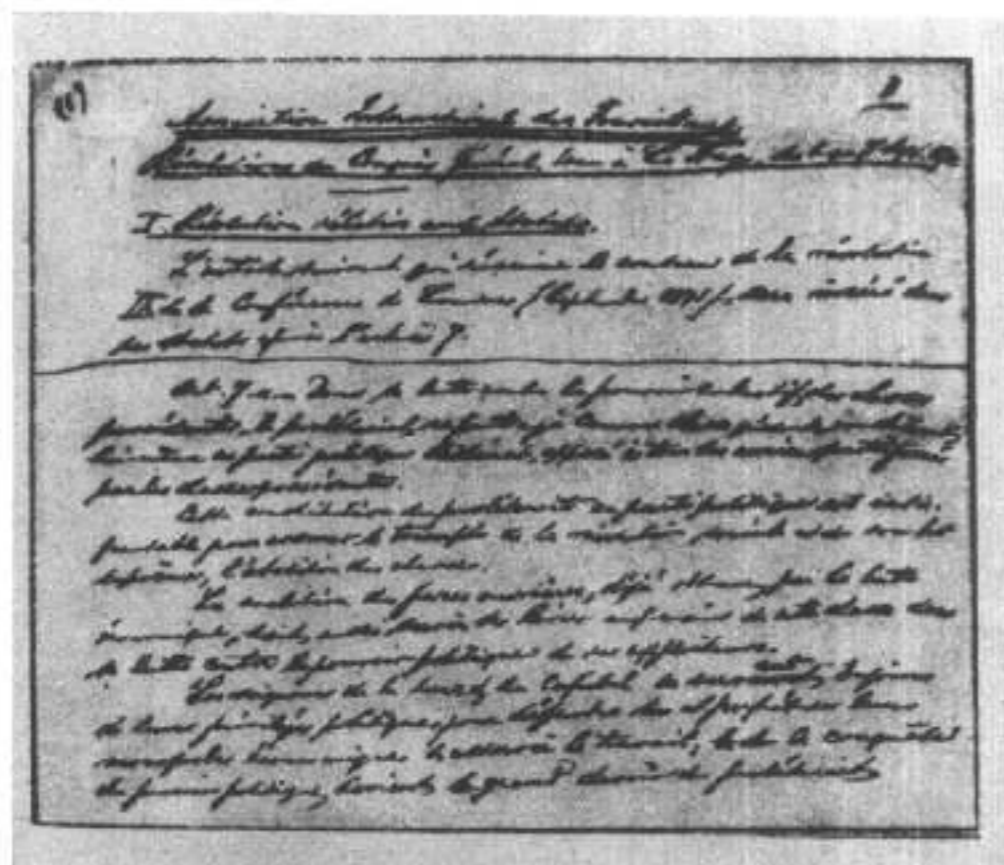 (1) 1
Association Internationale des Travailleurs
Résolutions du Congrès Général tenu à La Haye du 2 au 7 Sept.
I. Résolution relative aux Statuts.
L'article suivant qui résume le contenu de la résolution
IX de la Conférence de Londres (Septembre 1871) sera inséré dans
les Statuts après l'article 7.
Art. 7 a – Dans sa lutte contre le pouvoir collectif des classes
possédantes, le prolétariat ne peut agir comme classe qu'en se
constituant en parti politique distinct, opposé à tous les anciens partis formés
par les classes possédantes.
Cette constitution du prolétariat en parti politique est indis-
pensable pour assurer le triomphe de la révolution sociale et de son but
suprême, l'abolition des classes.
La coalition des forces ouvrières, déjà obtenue par la lutte
économique, doit aussi servir de levier aux mains de cette classe dans
sa lutte contre le pouvoir politique de ses exploiteurs.
Les seigneurs de la terre et du capital se servant toujours
de leurs privilèges politiques pour défendre et perpétuer leurs
monopoles économiques et asservir le travail, la conquête
du pouvoir politique devient le grand devoir du prolétariat